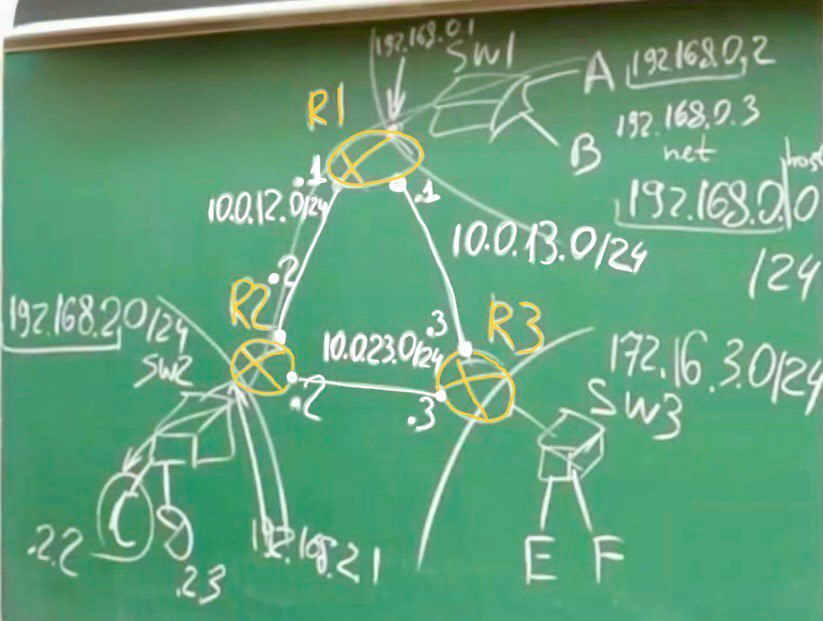 192.168.0.1
SW1
A 192.168.0.2
R1
192.168.0.3
B
net
host
.1
.1
192.168.0.0
10.0.12.0/24
10.0.13.0/24
/24
.2
R2
192.168.2.0/24
.3
R3
10.0.23.0/24
172.16.3.0/24
SW2
.2
.3
SW3
.2.2
192.168.2.1
E F
.23